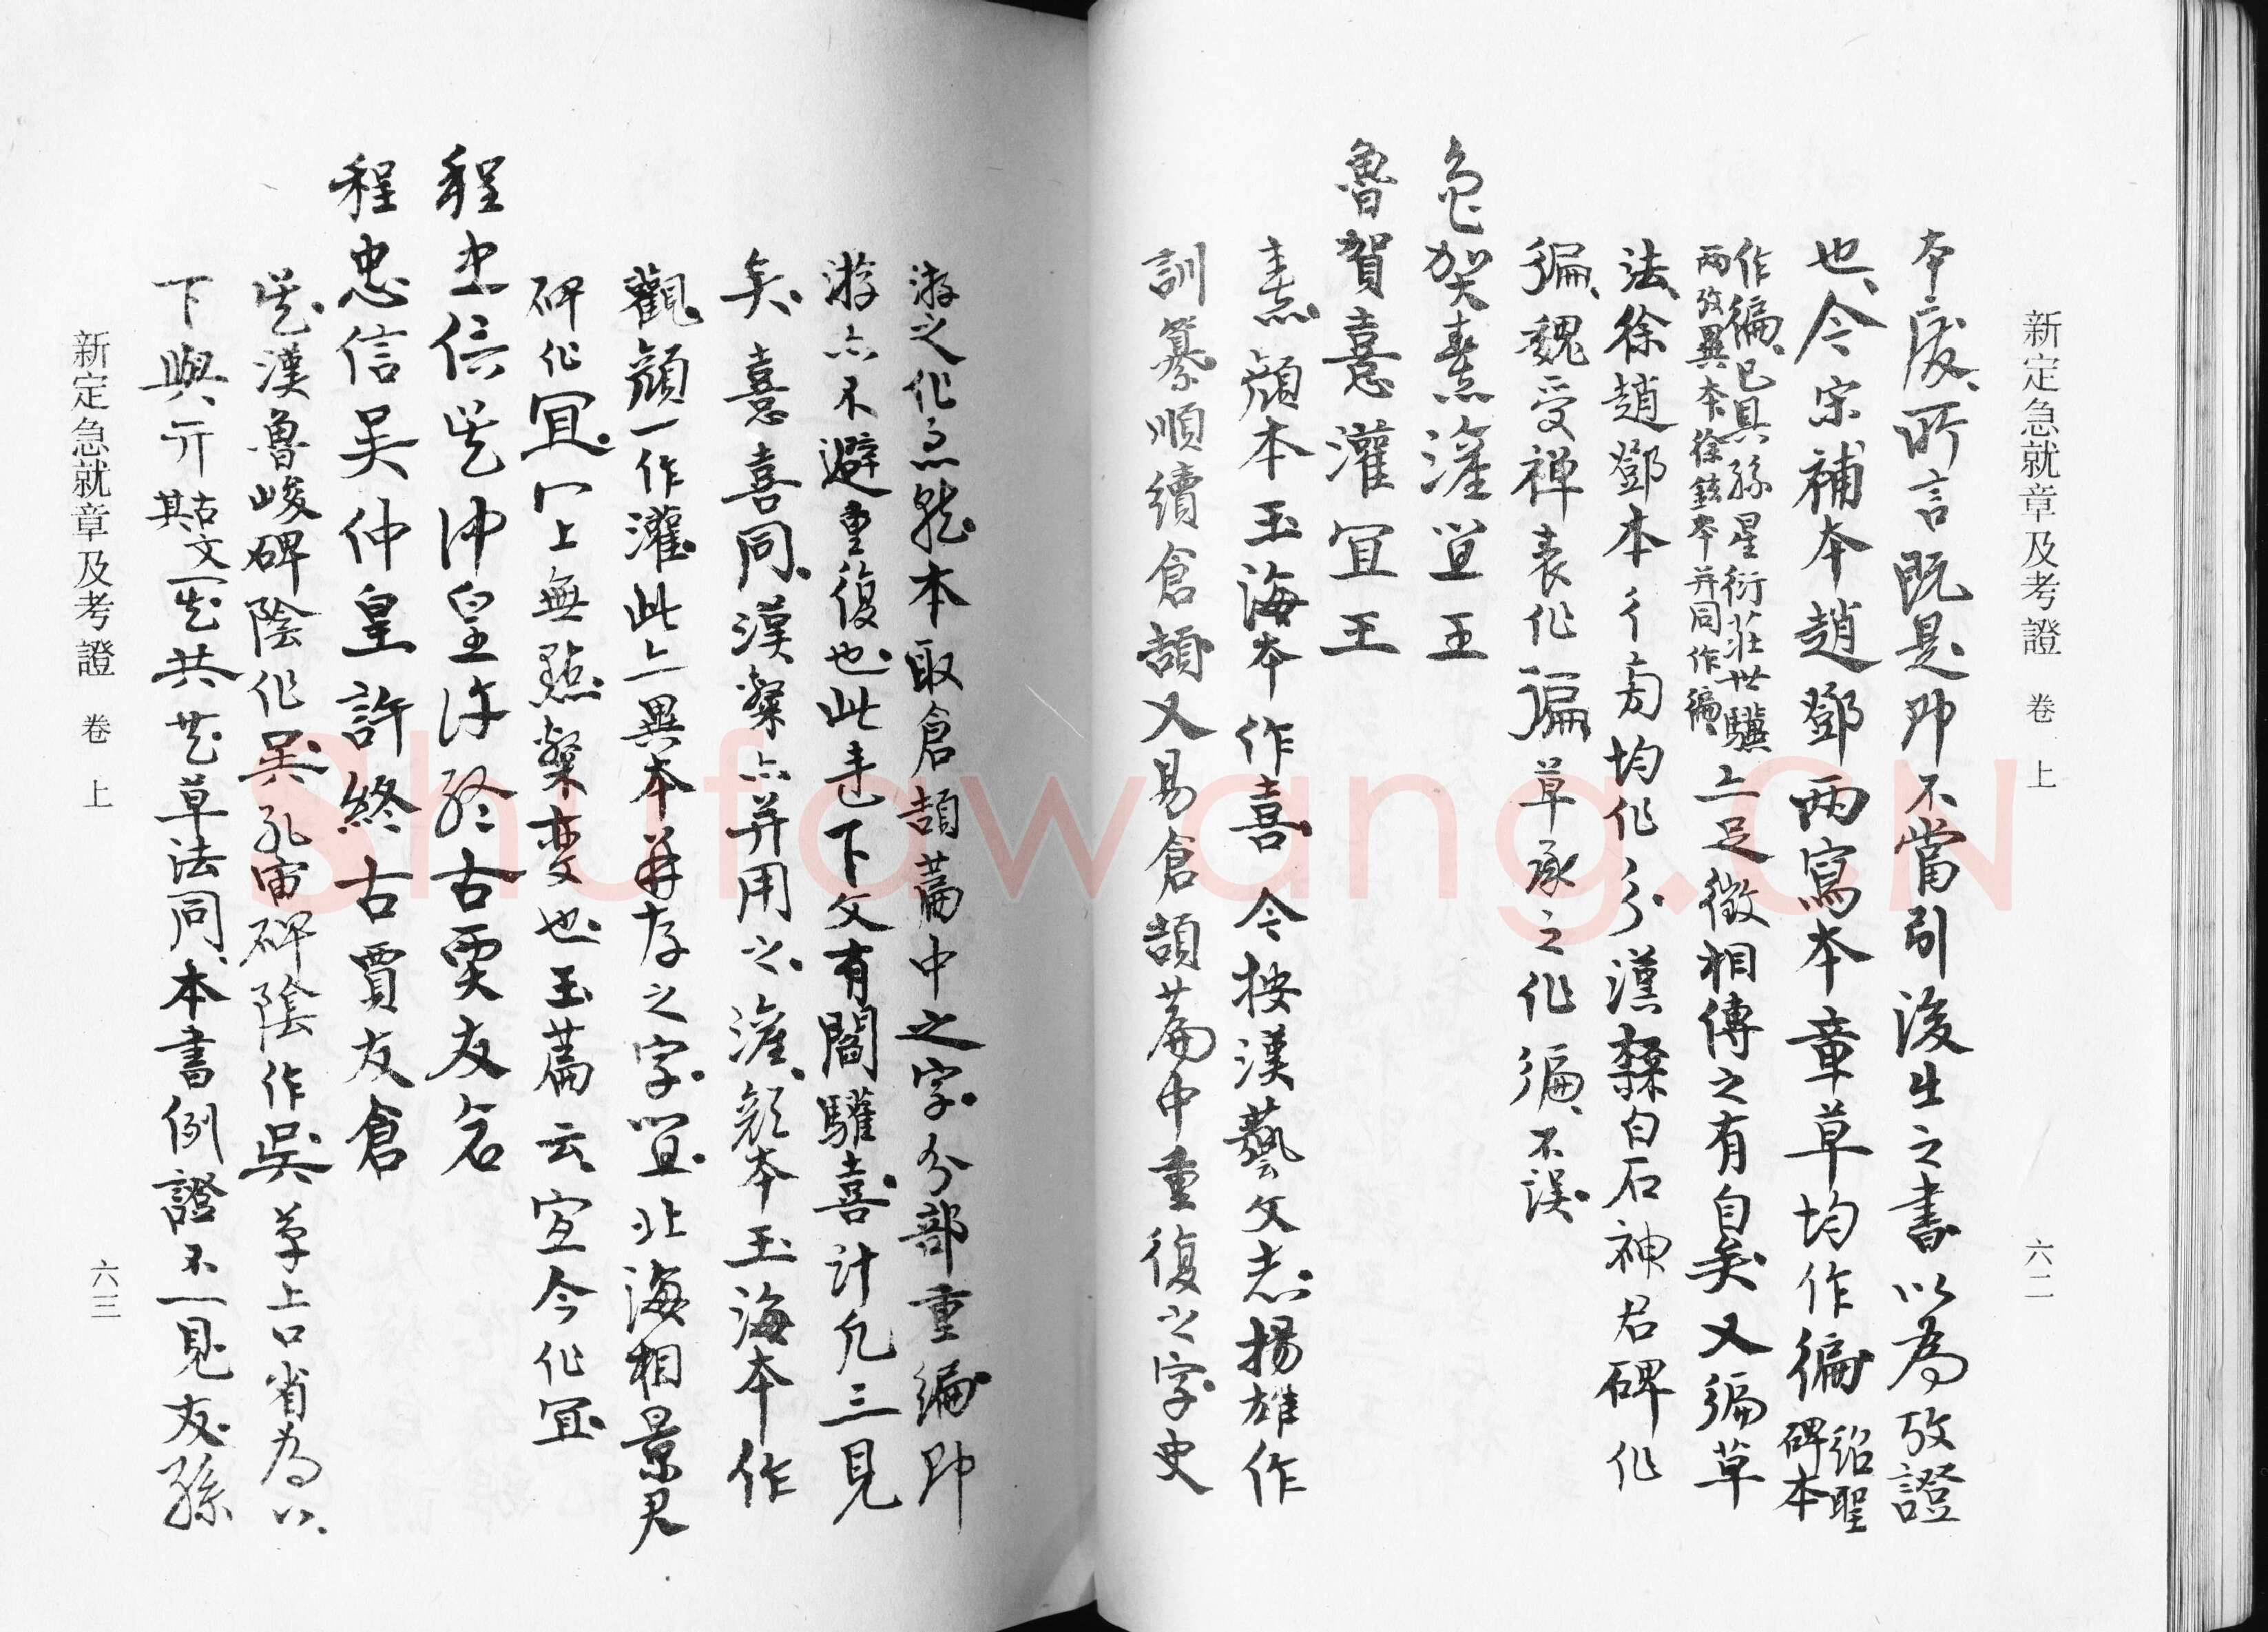 新定急就章及考證 卷上 六二
本廢所言既是即不當引後生之書以為攷證
也今宋補本趙鄧兩寫本章草均作徧紹聖碑本
作徧已具孫星衍莊世驥兩攷異本徐鉉本并同作徧上足徵相傳之有自矣又徧草
法徐趙鄧本彳旁均作彳漢隸白石神君碑作
徧魏受禅表作徧草承之作徧不误
魯贺熹灌宜王
魯賀憙灌宜王
憙顏本玉海本作喜今按漢藝文志揚雄作
訓纂順續倉頡又易倉頡篇中重復之字史
游之作亦就本取倉頡篇中之字分部重編即
游亦不避重復也此走下文有閻驩喜計凡三見
矣憙喜同漢繁亦并用之灌顏本玉海本作
觀顏一作灌此亦異本并存之字宜北海相景君
碑作冝冖上無點繁变也玉篇云宜今作冝
程忠信吴仲皇许终古贾友仓
程忠信吴仲皇許終古賈友倉
吴漢魯峻碑陰作吴孔宙碑陰作吴草上口省為八
下與亓古文其一共草法同本書例證不一見友孫
新定急就章及考證 卷上 六三
Shufawang.CN